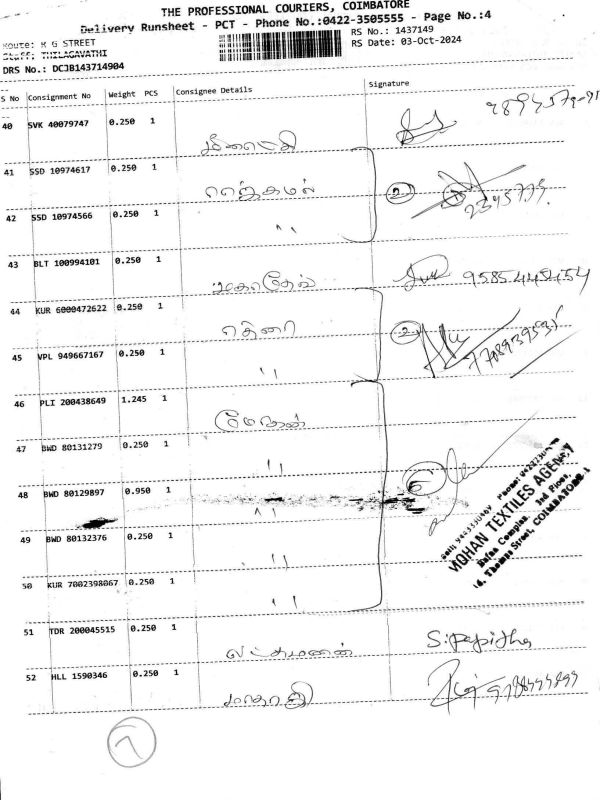 THE PROFESSIONAL COURIERS, COIMBATORE
Delivery Runsheet - PCT - Phone No.:0422-3505555 - Page No.:4
Route: R G STREET
RS No.: 1437149
Staff: THILAGAVATHI
RS Date: 03-Oct-2024
DRS No.: DCJB143714904
S No Consignment No Weight PCS Consignee Details Signature
40 SVK 40079747 0.250 1
41 SSD 10974617 0.250 1
42 SSD 10974566 0.250 1 "
2
43 BLT 100994101 0.250 1 மகாதேவ்
44 KUR 6000472622 0.250 1
2
45 VPL 949667167 0.250 1 "
46 PLI 200438649 1.245 1 மோகன்
47 BWD 80131279 0.250 1 "
48 BWD 80129897 0.950 1 "
MOHAN TEXTILES AGENCY
Complex, 3rd Floor,
Thomas Street, COIMBATORE-1
49 BWD 80132376 0.250 1 "
50 KUR 7002398067 0.250 1 "
51 TDR 200045515 0.250 1 லட்சுமணன் S. Papitha
52 HLL 1590346 0.250 1
7